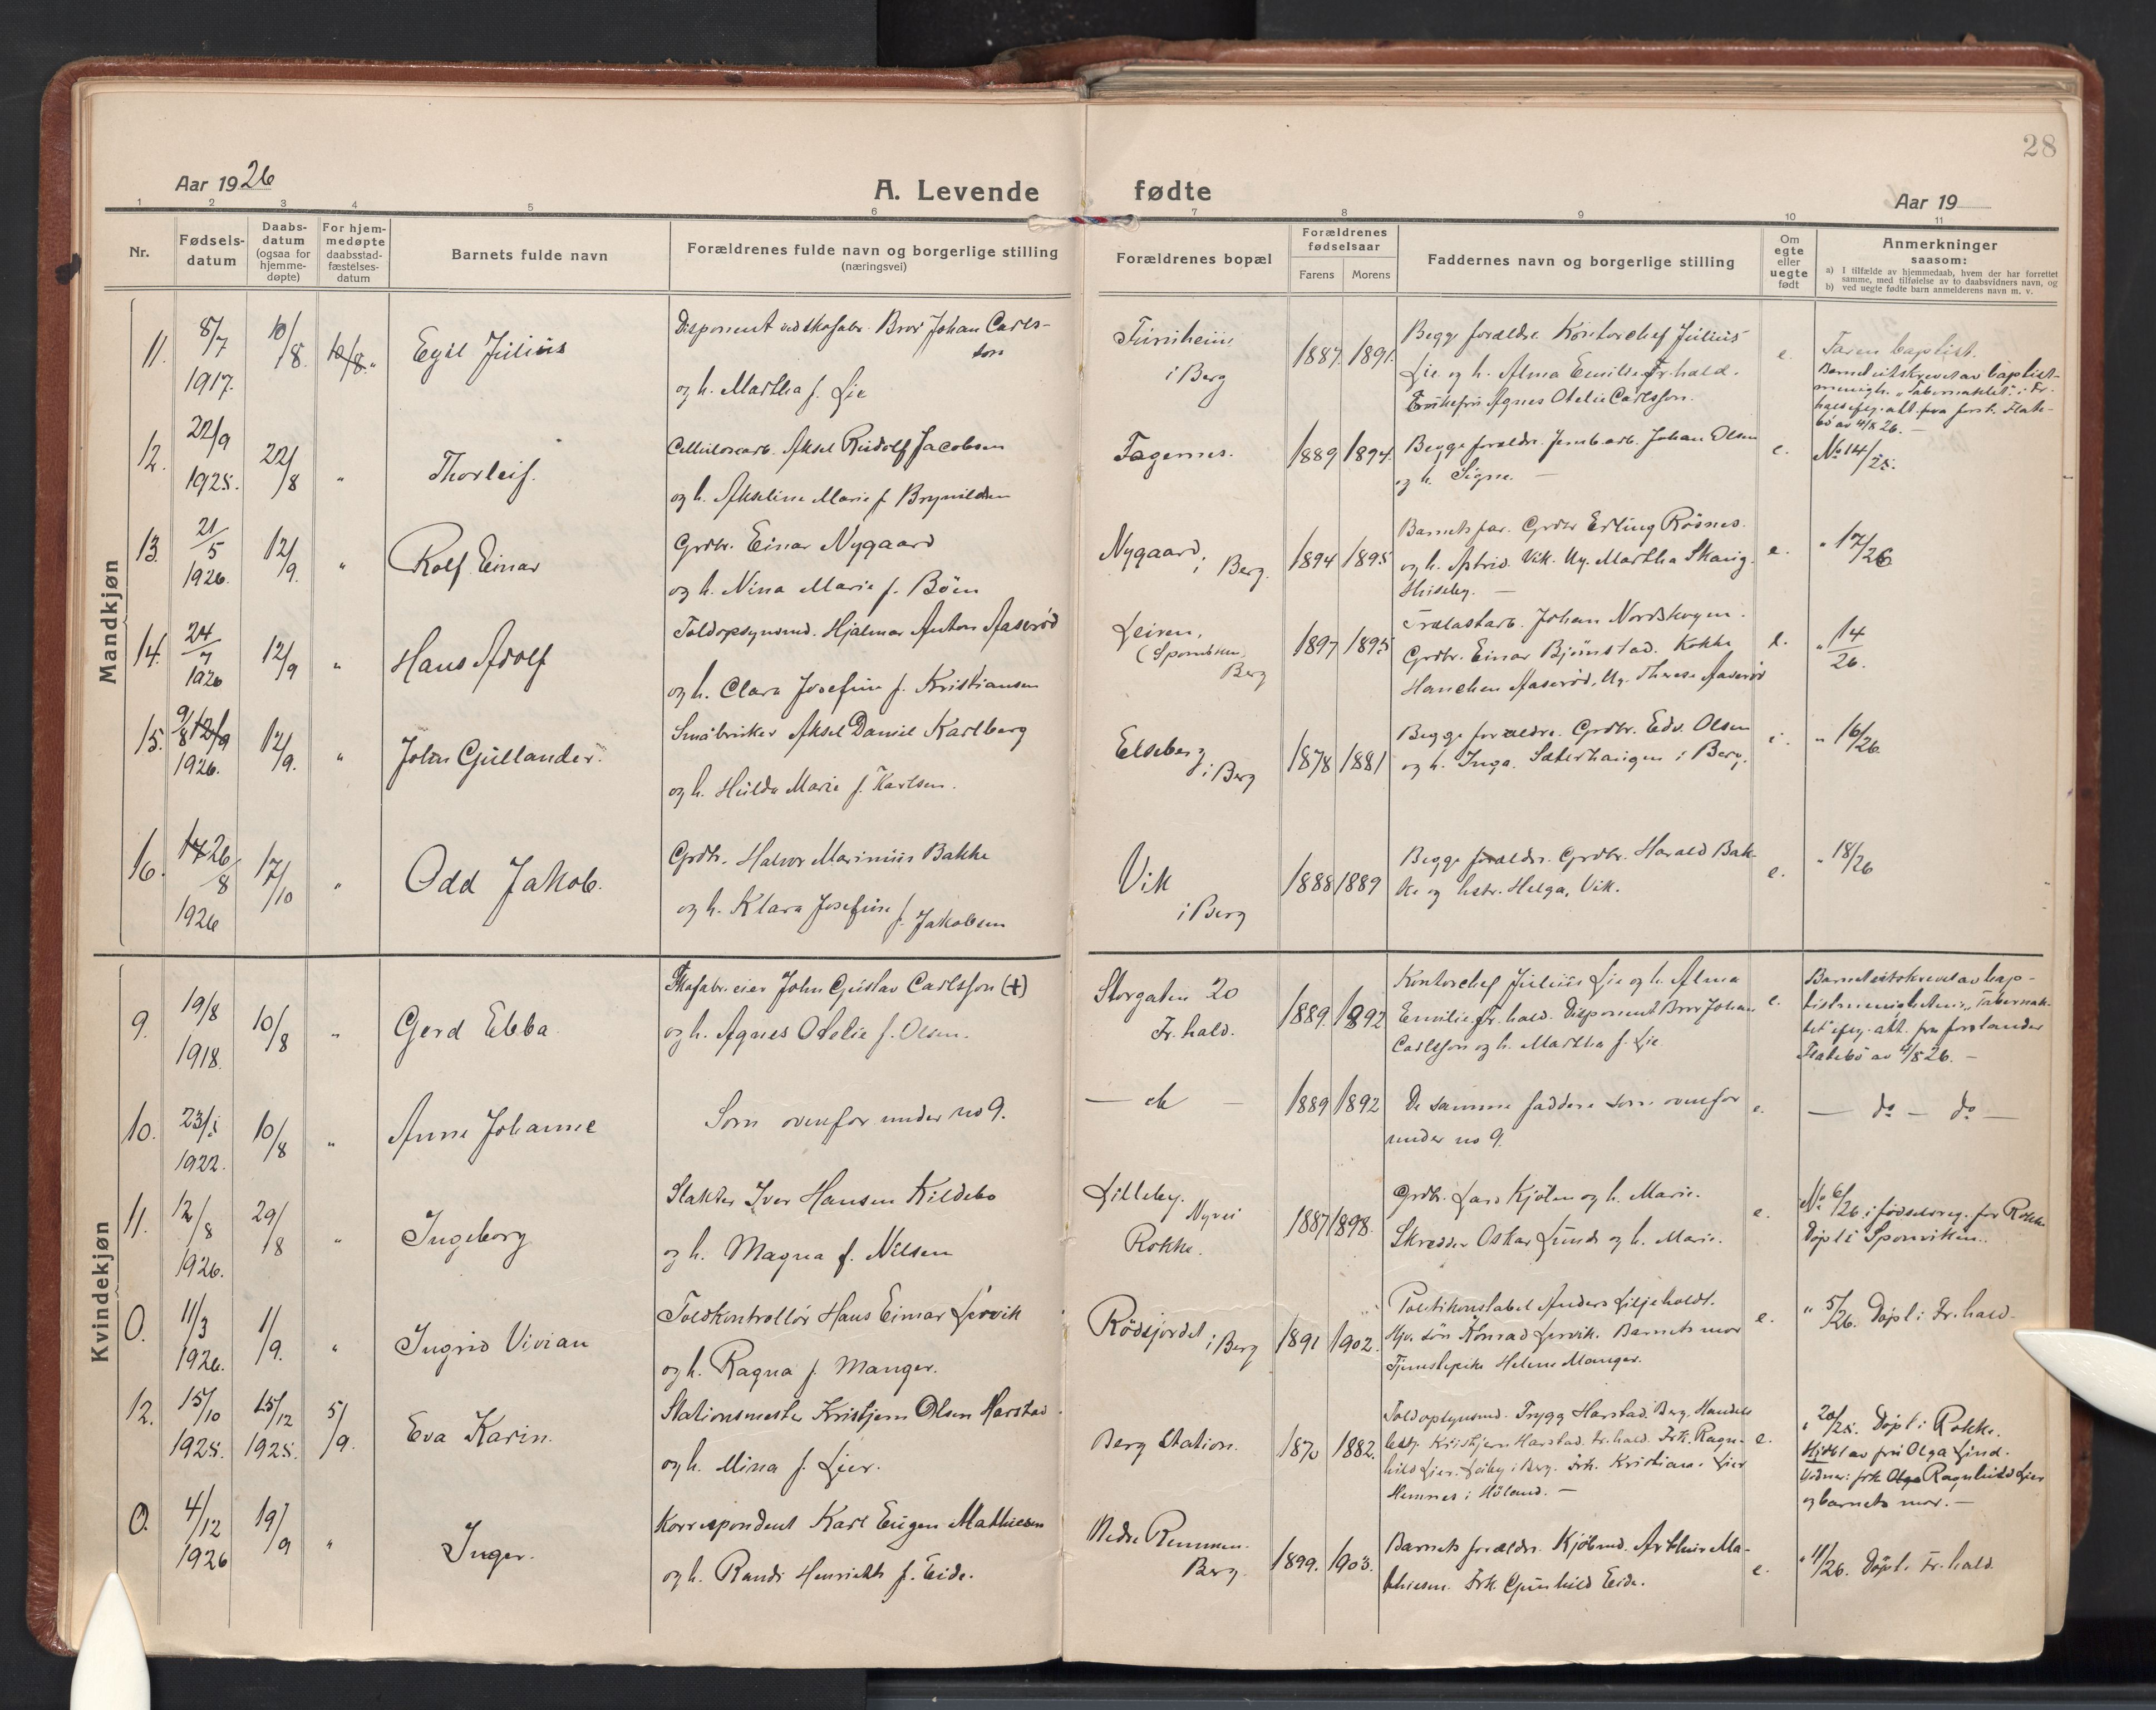 28
Aar 1926
A. Levende fødte
Aar 19
1 2 3 4 5 6 7 8 9 10 11
Nr.
Fødsels-
datum
Daabs-
datum
(ogsaa for
hjemme-
døpte)
For hjem-
medøpte
daabsstad-
fæstelses-
datum
Barnets fulde navn
Forældrenes fulde navn og borgerlige stilling
(næringsvei)
Forældrenes bopæl
Forældrenes
fødselsaar
Farens Morens
Faddernes navn og borgerlige stilling
Om
egte
eller
uegte
født
Anmerkninger
saasom:
a) I tilfælde av hjemmedaab, hvem der har forrettet
samme, med tilføielse av to daabsvidners navn, og
b) ved uegte fødte barn anmelderens navn m. v.
Mandkjøn
11. 8/7 1917. 10/8. 10/8. "
Egil Julius
Disponent ved skofabr. Bror Johan Carls-
son
og h. Martha f. Lie
i Berg
1887. 1891.
Begge forældre. Kontorchef Julius
Lie og h. Alma Emilie Fr.hald.
Agnes Otelie Carlsson.
e.
Faren baptist.
Barnet utskrevet av baptist-
menigh. "Tabernaklet" i Fr.
hald efter att. fra forst. Flate-
bö av 4/8 26. —
12. 22/9 1925. 22/8 "
Thorleif.
Cellulosearb. Aksel Rudolf Jacobsen
og h. Akseline Marie f. Brynildsen
Fagernes.
1889 1894.
Begge forældre. Jernb.arb. Johan Olsen
og h. Signe. —
e.
No 14/25.
13. 21/5 1926. 12/9. "
Rolf Einar
Grdbr. Einar Nygaard
og h. Nina Marie f. Böen
Nygaard,
i Berg.
1894 1895
Barnets far. Grdbr Erling Rösnes.
og h. Astrid. Vik. Ug. Martha Skaug.
Huseby. —
e.
" 17/26
14. 24/7 1926 12/9 "
Hans Adolf
Toldopsynsmd. Hjalmar Anton Aaserød
og h. Clara Josefine f. Kristiansen
Leiren,
(Sponviken)
Berg
1897 1895
Trælastarb. Johan Nordskogen.
Grdbr. Einar Bjørnstad. Kokke
Hanchen Aaserød, Ug. Therese Aaserød
e.
" 14/26.
15. 9/8 12/9 1926. 12/9. "
John Gullander.
Småbruker Aksel Daniel Karlberg
og h. Hulda Marie f. Karlsen.
Elseberg
i Berg
1878 1881
Begge forældre. Grdbr. Edv. Olsen
og h. Inga. Sæterhaugen i Berg.
e.
" 16/26.
16. 17 26/8 1926 17/10 "
Odd Jakob.
Grdb. Halvor Marinius Bakke
og h. Klara Josefine f. Jakobsen
Vik
i Berg
1888 1889
Begge forældre. Grdbr. Harald Bak-
ke og hstr. Helga, Vik.
e.
" 18/26
Kvindekjøn
9. 19/8 1918. 10/8 "
Gerd Ebba
Skofabr. eier John Gustav Carlsson (+)
og h. Agnes Otelie f. Olsen.
Storgaten 20
Fr.hald.
1889. 1892
Kontorchef Julius Lie og h. Alma
Emilie, Fr.hald. Disponent Bror Johan
Carlsson og h. Martha f. Lie
e.
Barnet utskrevet av bap-
tistmenigheten i "Tabernak-
let" efter att. fra forstander
Flatebö av 4/8 26. —
10. 23/ 1922. 10/8 "
Anne Johanne
Som ovenfor under no 9.
1889 1892
De samme faddere som ovenfor
under no 9.
e.
— do — do —
11. 12/8 1926. 29/8 "
Ingeborg
Slakter Iver Hansen Kildebo
og h. Magna f. Nilsen
Lilleby.
Nyvei
Rokke.
1887 1898.
Grdb. Lars Kjölen og h. Marie.
Skrædder Oskar Lund og h. Marie.
e.
No 6/26 i fødselsreg. for Rokke
Døpt i Sponviken.
0. 11/3 1926. 1/9. "
Ingrid Vivian
Toldkontrollør Hans Einar Lervik
og h. Ragna f. Manger.
Rødsjordet i Berg
1891 1902.
Politikonstabel Anders Liljeholdt.
Hjv. søn Konrad Lervik. Barnets mor
Tjenestepike Helene Manger.
e.
" 5/26. Døpt i Fr.hald.
12. 15/10 1925. 25/12 1925. 5/9.
Eva Karin.
Stationsmester Kristjern Olsen Harstad.
og h. Mina f. Lier.
Berg Station.
1870 1882.
Toldopsynsmd. Trygg Harstad. Berg. Handels
best. Kristjern Harstad. Fr.hald. Frk. Ragn-
hild Lier. Leiby i Berg. Frk. Kristiane Lier
Hemnes i Höland. —
e.
" 20/25. Døpt i Rokke.
Hjdbt av fru Olga Lind.
Vidner: frk Olga Ragnhild Lier
og barnets mor. —
0. 4/12 1926 19/9 "
Inger.
Korrespondent Karl Eugen Mathiesen
og h. Randi Henriette f. Eide.
Nedre Remmen.
Berg.
1899. 1903.
Barnets forældre. Kjöbmd. Arthur Ma-
thiesen. Frk. Gunhild Eide.
e.
" 11/26. Døpt i Fr.hald.